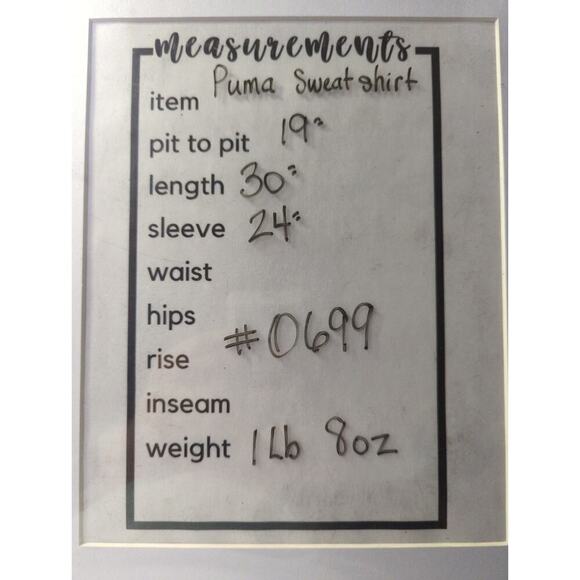 measurements
item Puma Sweatshirt
pit to pit 19"
length 30"
sleeve 24"
waist
hips
#0699
rise
inseam
weight 1 Lb 8oz